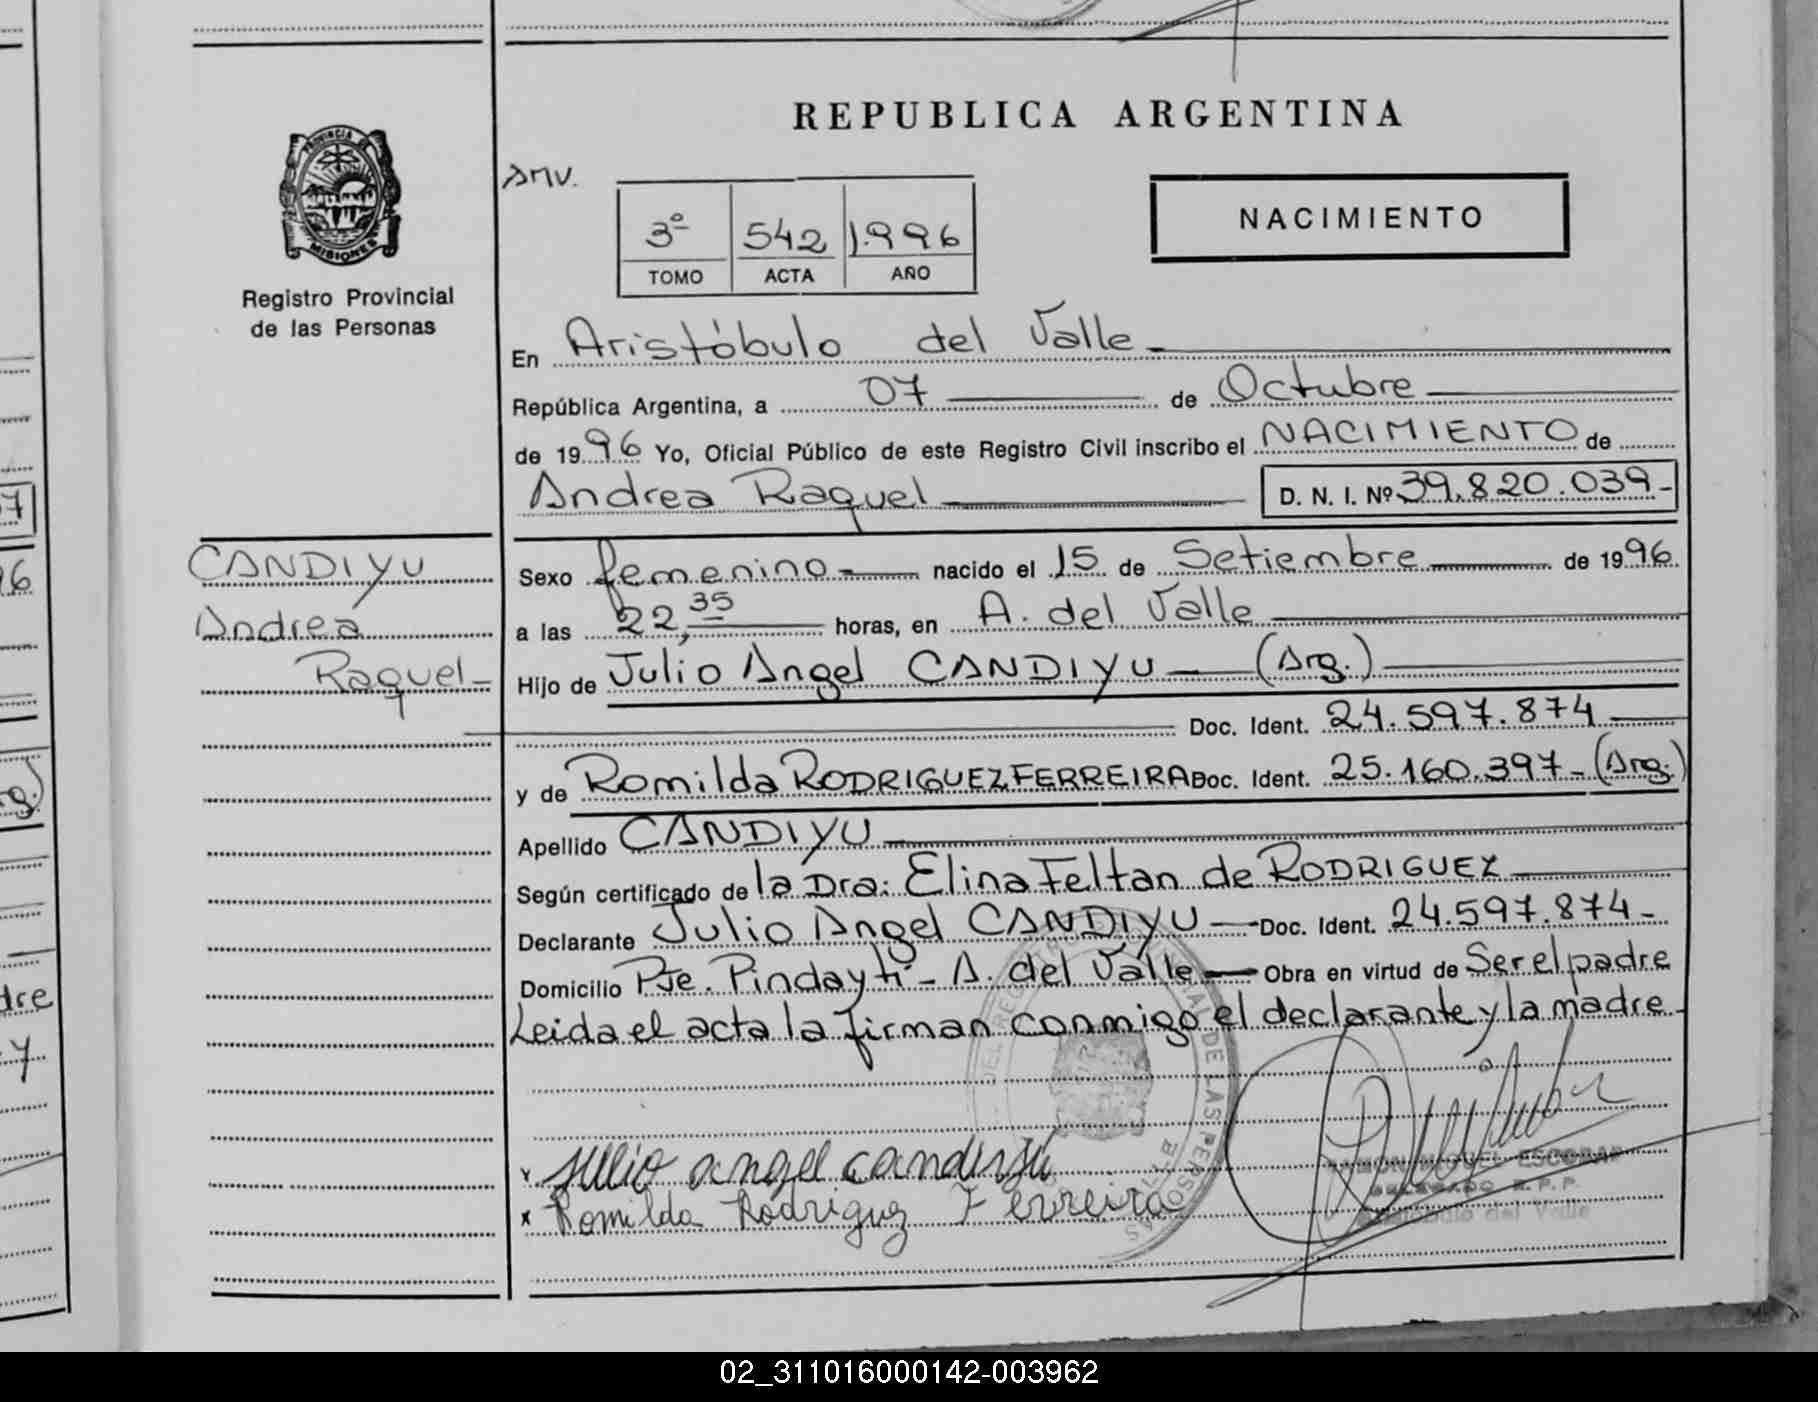 REPUBLICA ARGENTINA
PROVINCIA DE
MISIONES
Registro Provincial
de las Personas
AMV.
3º 542 1.996
TOMO ACTA AÑO
NACIMIENTO
En Aristóbulo del Valle
República Argentina, a 07 de Octubre
de 1996 Yo, Oficial Público de este Registro Civil inscribo el NACIMIENTO de
Andrea Raquel D. N. I. Nº 39.820.039-
CANDIYU
Andrea
Raquel-
Sexo femenino nacido el 15 de Setiembre de 1996
a las 22,35 horas, en A. del Valle
Hijo de Julio Angel CANDIYU (Arg.)
Doc. Ident. 24.597.874
y de Romilda RODRIGUEZ FERREIRA Doc. Ident. 25.160.397-(Arg.)
Apellido CANDIYU
Según certificado de la Dra: Elina Feltan de RODRIGUEZ
Declarante Julio Angel CANDIYU Doc. Ident. 24.597.874-
Domicilio Pje. Pindayti - A. del Valle Obra en virtud de Ser el padre
Leida el acta la firman conmigo el declarante y la madre
julio angel candiyú
x Romilda Rodriguez Ferreira
RAMON MIGUEL ESCOBAR
DELEGADO R.P.P.
Aristóbulo del Valle
02_311016000142-003962